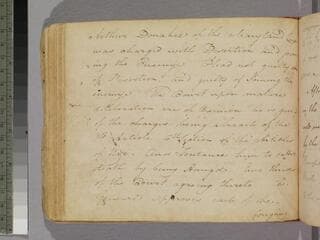 Arthur Donahoe of the Maryland
was charged with Desertion and
ing the Enemy. Plead not guilty
of Desertion and guilty of Joining the
enemy. The Court upon mature
deliberation are of Opinion he is guilty
of the charges being a breach of the
Article Section of the Articles
of War. And Sentence him to suffer
death by being Hanged two thirds
of the Court agreeing thereto
General approves each of the
foregoing